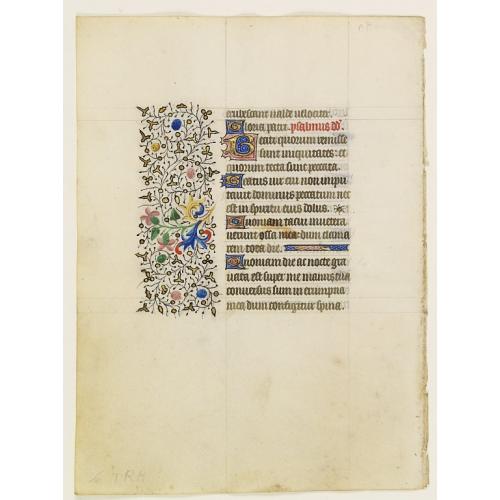 erubescant ualde uelociter.
Gloria patri. psalmus dd.
Beati quorum remisse
sunt iniquitates: et
quorum tecta sunt peccata.
Beatus uir cui non impu
tauit dominus peccatum nec
est in spiritu eius dolus.
Quoniam tacui inuetera
uerunt ossa mea: dum clama
rem tota die.
Quoniam die ac nocte gra
uata est super me manus tua
conuersus sum in erumpna
mea dum configitur spina.
TRH